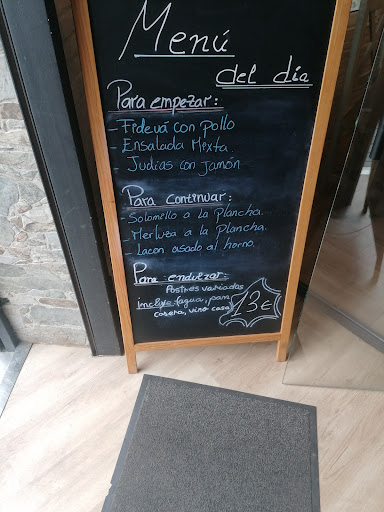 Menú
del día
Para empezar:
- Fideuá con pollo
- Ensalada Mixta
- Judias con jamón
Para continuar:
- Solomillo a la plancha.
- Merluza a la plancha.
- Lacon asado al horno.
Para endulzar:
Postres variados
incluye agua, pan
casera, vino casa
13€